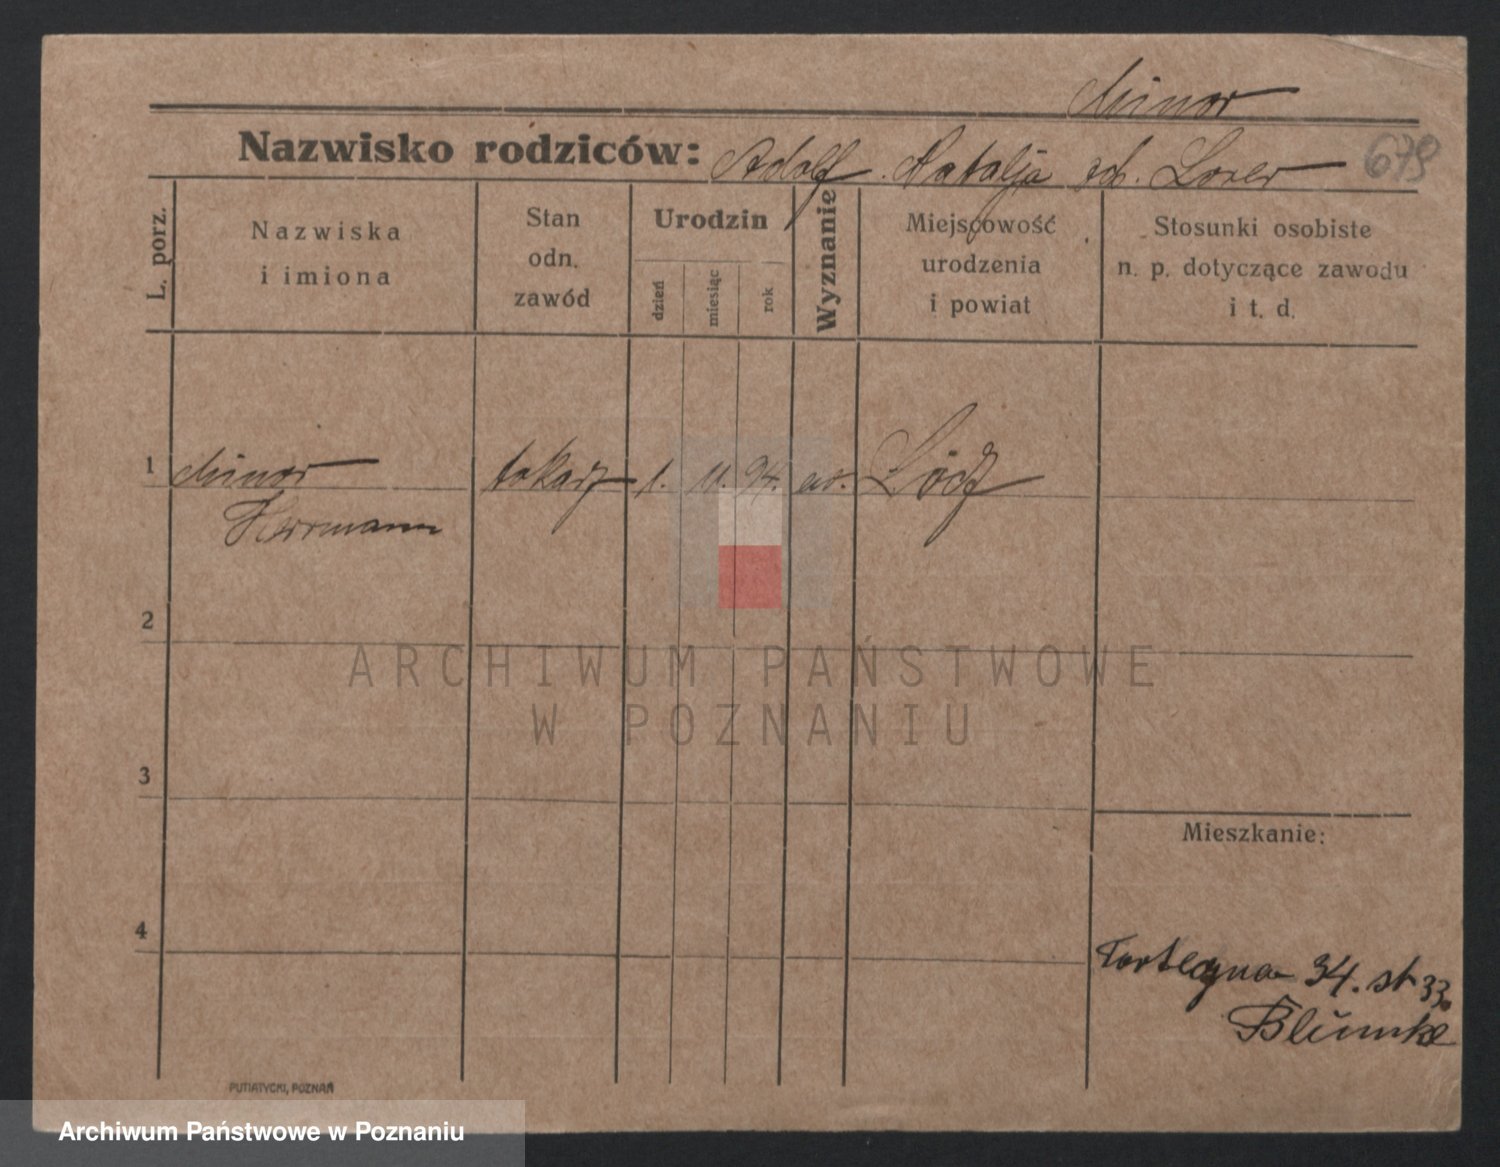 Minor
Nazwisko rodziców: Adolf. Natalja
679
L. porz.
Nazwiska
i imiona
Stan
odn.
zawód
Urodzin
dzień
miesiąc
rok
Wyznanie
Miejscowość
urodzenia
i powiat
Stosunki osobiste
n. p. dotyczące zawodu
i t. d.
1 Minor tokarz 1. 11. 94. ew. Łódź
Herrmann
2
ARCHIWUM PAŃSTWOWE
W POZNANIU
3
Mieszkanie:
4
Forteczna 34. st 33.
Blümke
PUTIATYCKI, POZNAŃ
Archiwum Państwowe w Poznaniu